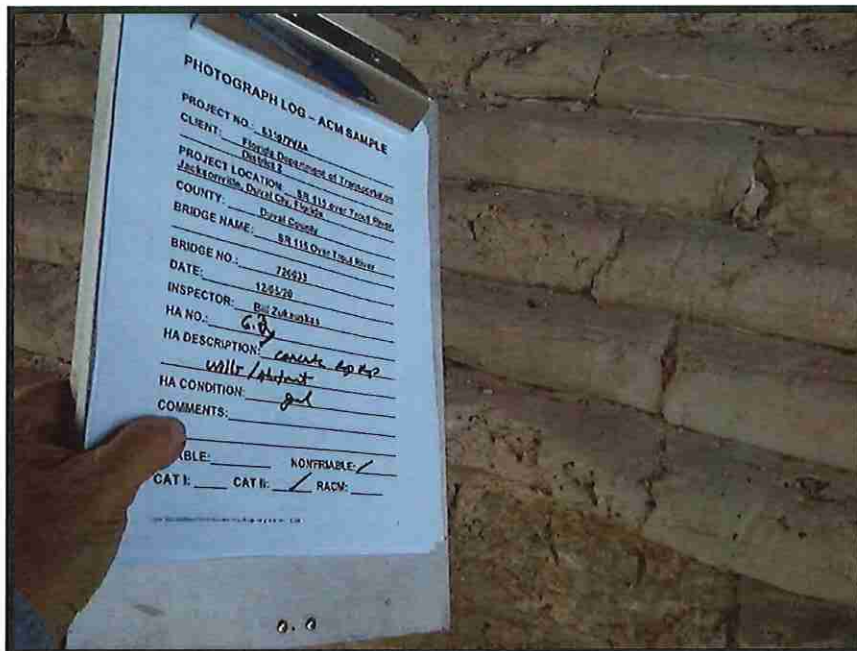 PHOTOGRAPH LOG – ACM SAMPLE
PROJECT NO.:
CLIENT: Florida Department of Transportation
District 2
PROJECT LOCATION: SR 115 over Trout River,
Jacksonville, Duval City, Florida
COUNTY: Duval County
BRIDGE NAME: SR 115 Over Trout River
BRIDGE NO.: 720033
DATE: 12/05/20
INSPECTOR: Bill Zukauskas
HA NO.:
HA DESCRIPTION: concrete rip rap
walls /
HA CONDITION: good
COMMENTS:
ABLE: NONFRIABLE: /
CAT I: CAT II: / RACM: